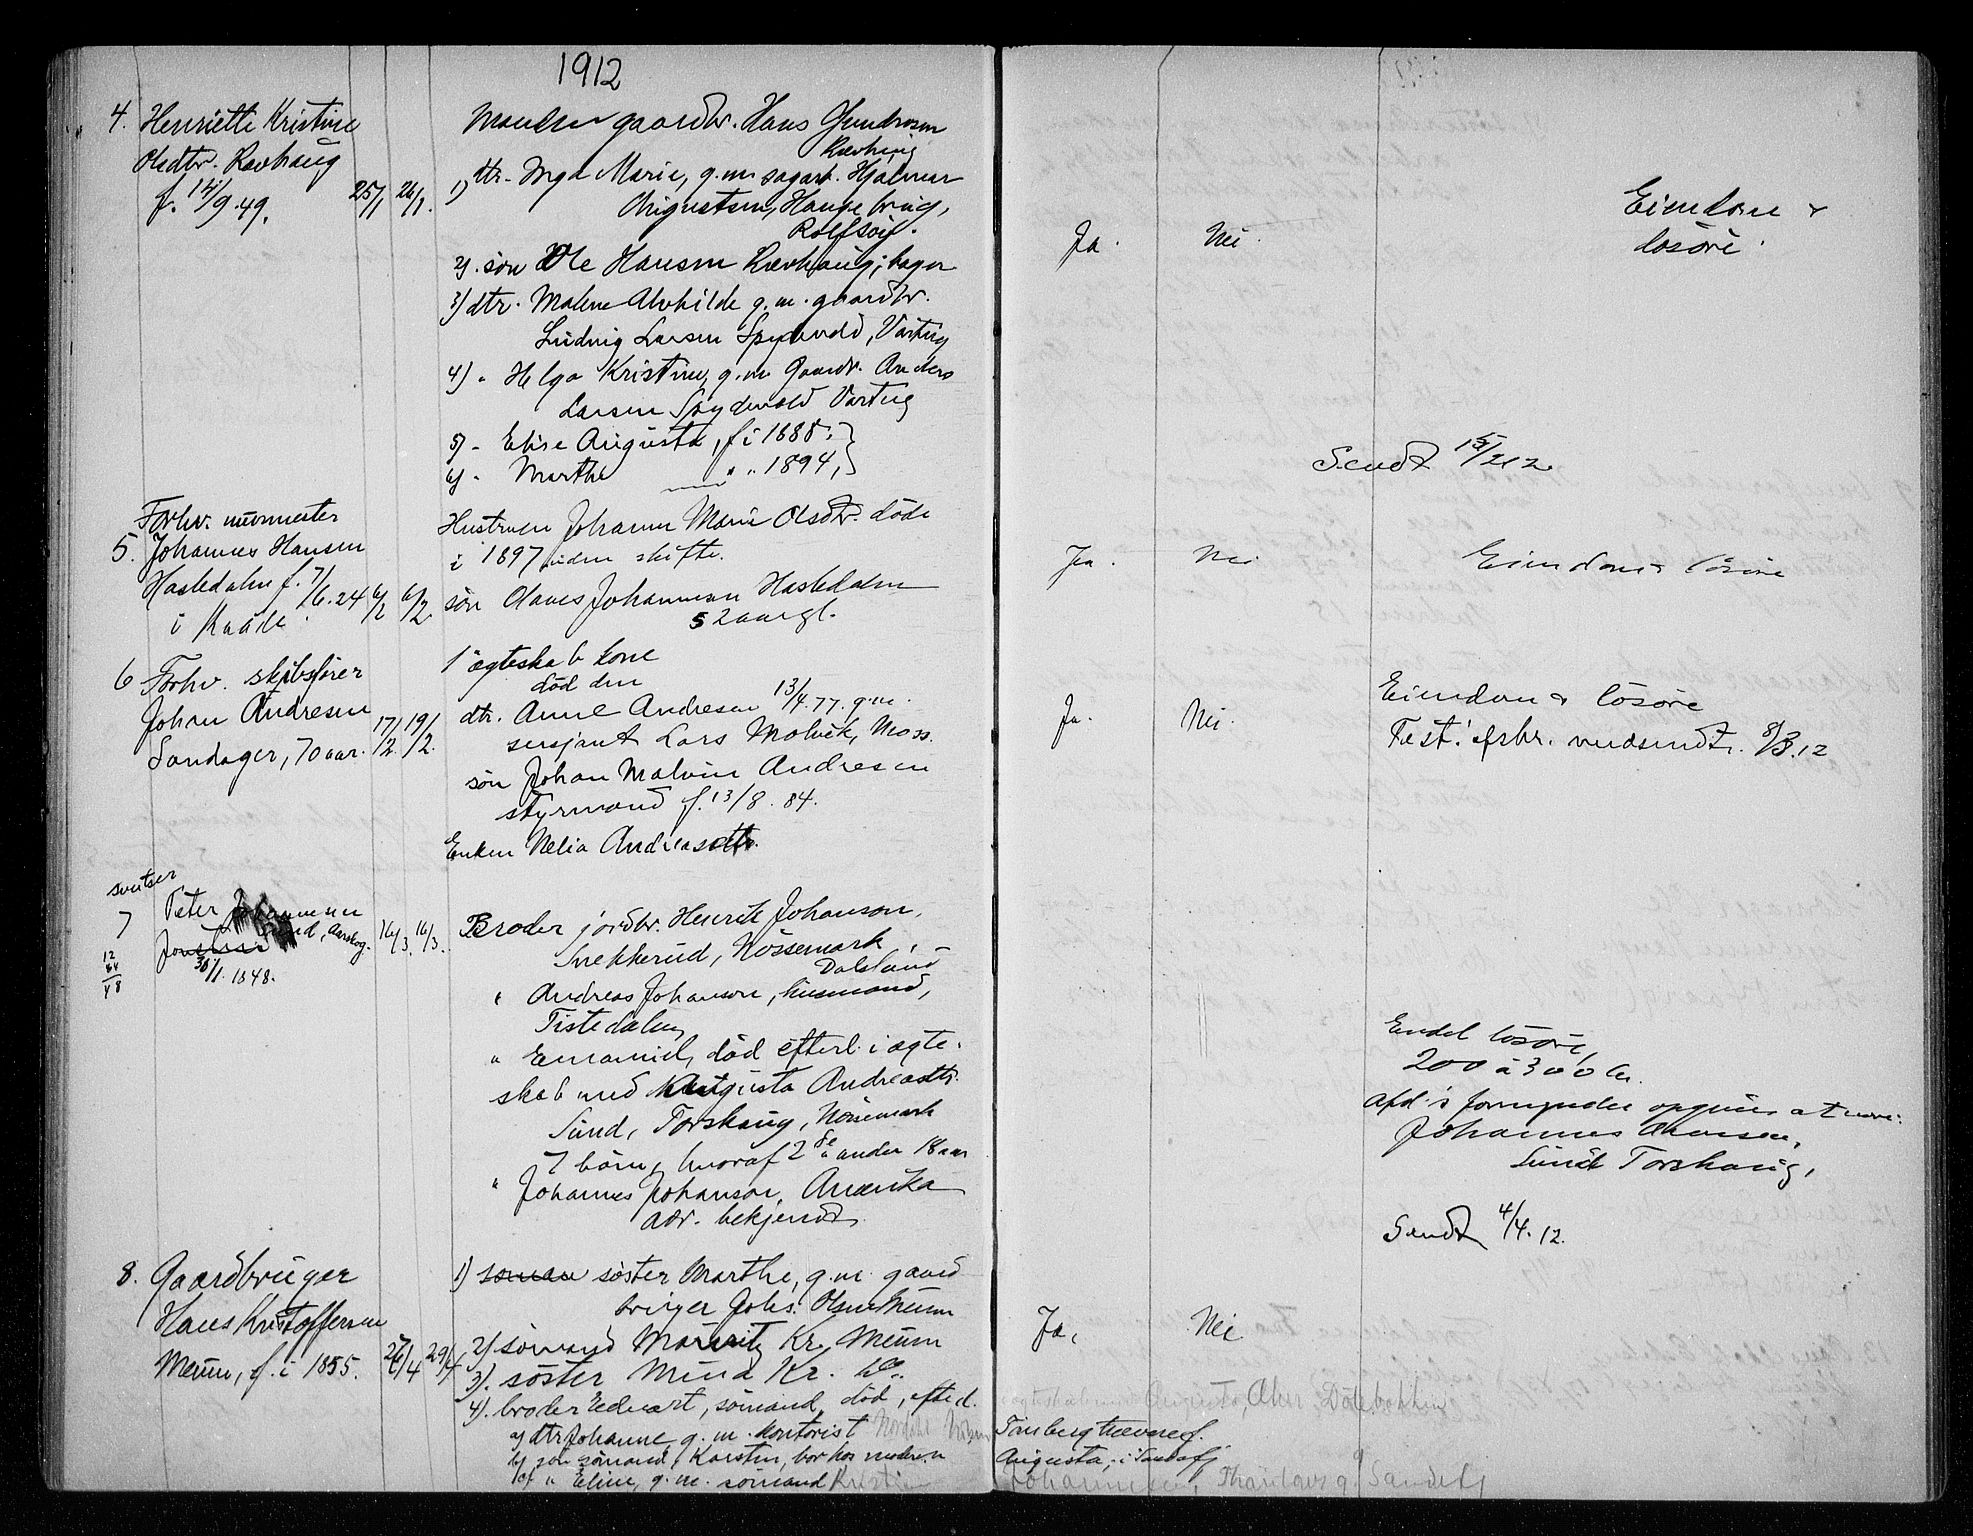 1912
4. Henriette Kristine
Olsdtr. Rævhaug
f. 14/9.49.
25/1 26/1.
Manden gaardbr. Hans Gundersen
Rævhaug
1) dtr. Inga Marie, g.m. sagarb. Hjalmar
Augustsen, Hauge brug,
Rolfsöy.
2). sön Ole Hansen Rævhaug; bager
3) dtr. Malene Alvhilde g.m. gaardbr.
Ludvig Larsen Spydevold, Varteig
4) " Helga Kristine, g.m. Gaardbr. Anders
Larsen Spydevold Varteig
5) - Elise Augusta, f i 1888.
6) - Marthe " " 1894,
Ja. Nei.
Eiendom &
lösöre.
Sendt
Forhv. murmester
5. Johannes Hansen
Hasledalen f. 7/6.24
i Raade.
6/2 6/2
Hustruen Johanne Marie Olsdtr. döde
i 1897 uden skifte.
sön Claves Johannesen Hasledalen
52 aar gl.
Ja. Nei
Eiendom & lösöre
6 Forhv. skibsförer
Johan Andresen
Sandager, 70 aar.
17/2 19/2.
1' ægteskab kone
död den
dtr. Anne Andresen 13/4.77. g.m.
sersjant Lars Molvik, Moss.
sön Johan Malvin Andresen
styrmand f. 13/8.84.
Enken Nelia Andreasdtr.
Ja. Nei.
Eiendom & lösöre
Test. efskr. vedsendt. 8/3.12
sveitser
7 Peter Johannesen
Sund, Aarskog.
30/1. 1848.
12
64
48
16/3. 16/3.
Broder jordbr. Henrik Johanson,
Snekkerud, Nössemark,
Dalsland
" Andreas Johanson, husmand,
Tistedalen
" Emanuel, död efterl. i ægte-
skab med Augusta Andreasdtr.
Sund, Torskaug, Nössemark
7 börn, hvoraf 2 de " under 18 aar
" Johannes Johanson, Amerika
adr. bekjendt.
Endel lösöre,
200 à 300 kr.
Afd.s formynder opgives at være:
Johannes
Sund Torskaug,
Sendt 4/4.12.
8. Gaardbruger
Hans Kristoffersen
Meum, f. i 1855.
26/4 29/4
1) söster Marthe, g.m. gaard
bruger Johs. Olsen Meum
2) sömand Mauritz Kr. Meum
3). söster Mina Kr. do.
4). broder Edvart, sömand, död, efterl.
Augusta,
a) dtr Johanne g.m. kontorist
Tönsberg trævaref.
b) sön sömand, Karsten, bor hos moderen
Augusta, i Sandefj
c) " Eline, g.m. sömand Kristian
Johannesen, Sandefj
Ja, Nei